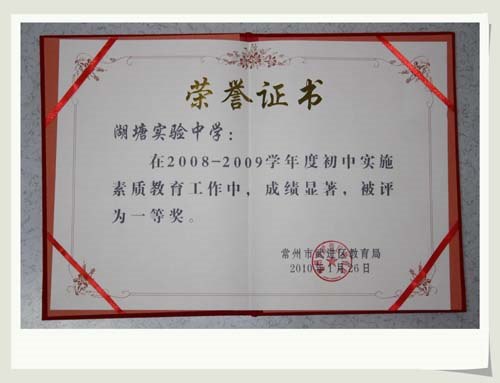 荣誉证书
湖塘实验中学：
在2008-2009学年度初中实施
素质教育工作中，成绩显著，被评
为一等奖。
常州市武进区教育局
2010年1月26日